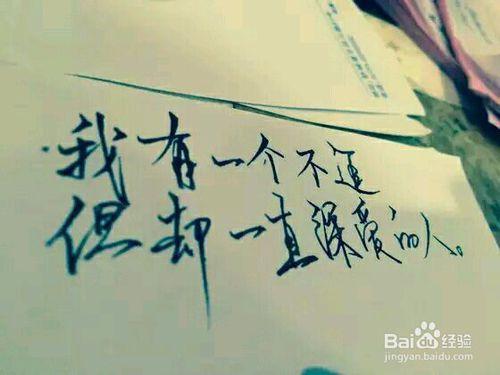 我有一个不追
但却一直深爱的人。
Bai 经验
jingyan.baidu.com